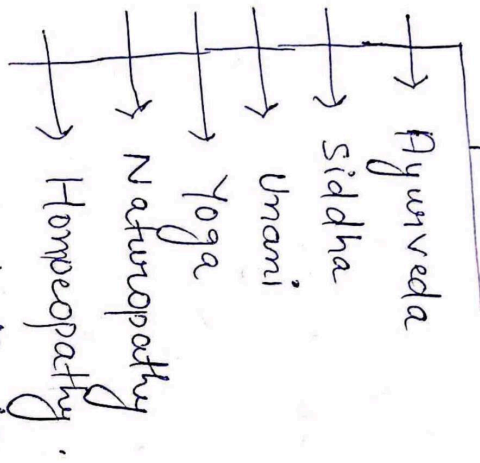 Ayurveda
Siddha
Unani
Yoga
Naturopathy
Homoeopathy.